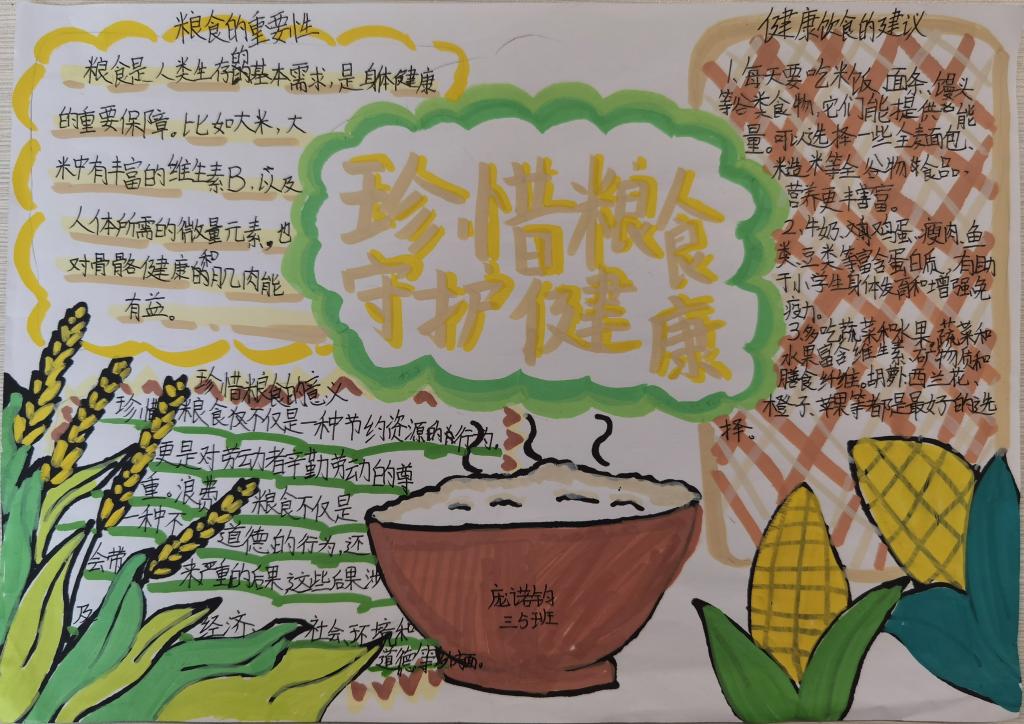 粮食的重要性
粮食是人类生存的基本需求，是身体健康
的重要保障。比如大米，大
米中有丰富的维生素B，以及
人体所需的微量元素，也
对骨骼健康的和肌肉能
有益。
珍惜粮食
守护健康
健康饮食的建议
1.每天要吃米饭、面条、馒头
等谷类食物，它们能提供能
量。可以选择一些全麦面包、
糙米等全谷物食品，
营养更丰富。
2.牛奶、鸡蛋、瘦肉、鱼
类、豆类等富含蛋白质，有助
于小学生身体发育和增强免
疫力。
3.多吃蔬菜和水果，蔬菜和
水果富含维生素、矿物质和
膳食纤维。胡萝卜、西兰花、
橙子、苹果等都是最好的选
择。
珍惜粮食的意义
珍惜粮食仅不仅是一种节约资源的行为，
更是对劳动者辛勤劳动的尊
重。浪费粮食不仅是
一种不道德的行为，还
会带来严重的后果，这些后果涉
及经济、社会、环境和
道德等多方面。
庞诺钧
三5班